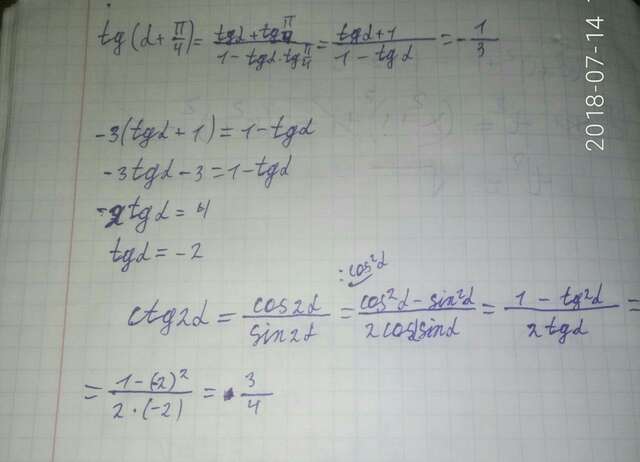 tg(α + π/4) = (tgα + tg π/4)/(1 - tgα · tg π/4) = (tgα + 1)/(1 - tgα) = - 1/3
-3(tgα + 1) = 1 - tgα
-3tgα - 3 = 1 - tgα
-2tgα = 4
tgα = -2
: cos²α
ctg2α = cos2α/sin2α = (cos²α - sin²α)/(2cosαsinα) = (1 - tg²α)/(2tgα) =
= (1 - (-2)²)/(2 · (-2)) = 3/4
2018-07-14 1